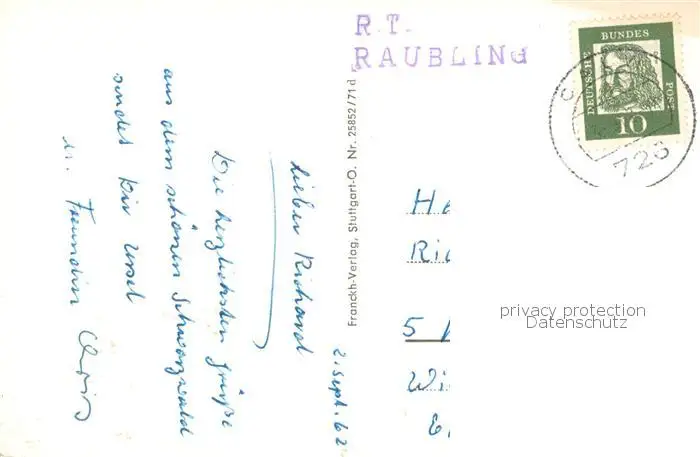 R.T.
RAUBLING
DEUTSCHE BUNDES POST
10
726
Franckh-Verlag, Stuttgart-O. Nr. 25852/71d
2. Sept. 62
Lieber Richard
Die herzlichsten Grüße
aus dem schönen Schwarzwald
sendet Dir Ursel
u. Freundin
He
Ric
5
Wi
privacy protection
Datenschutz